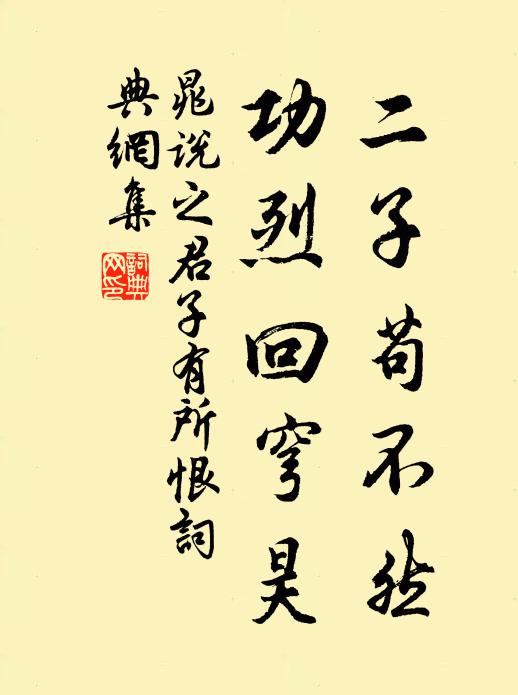 二子苟不然
功烈回穹昊
晁说之君子有所恨詞
典網集
詞典網印